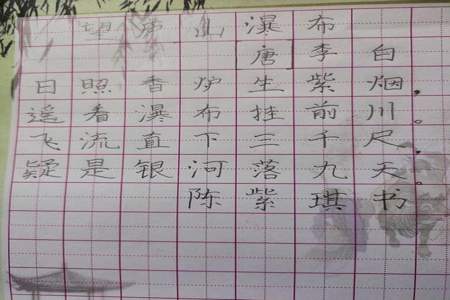 望庐山瀑布
唐李白
日照香炉生紫烟。
遥看瀑布挂前川。
飞流直下三千尺。
疑是银河落九天。
陈紫琪书